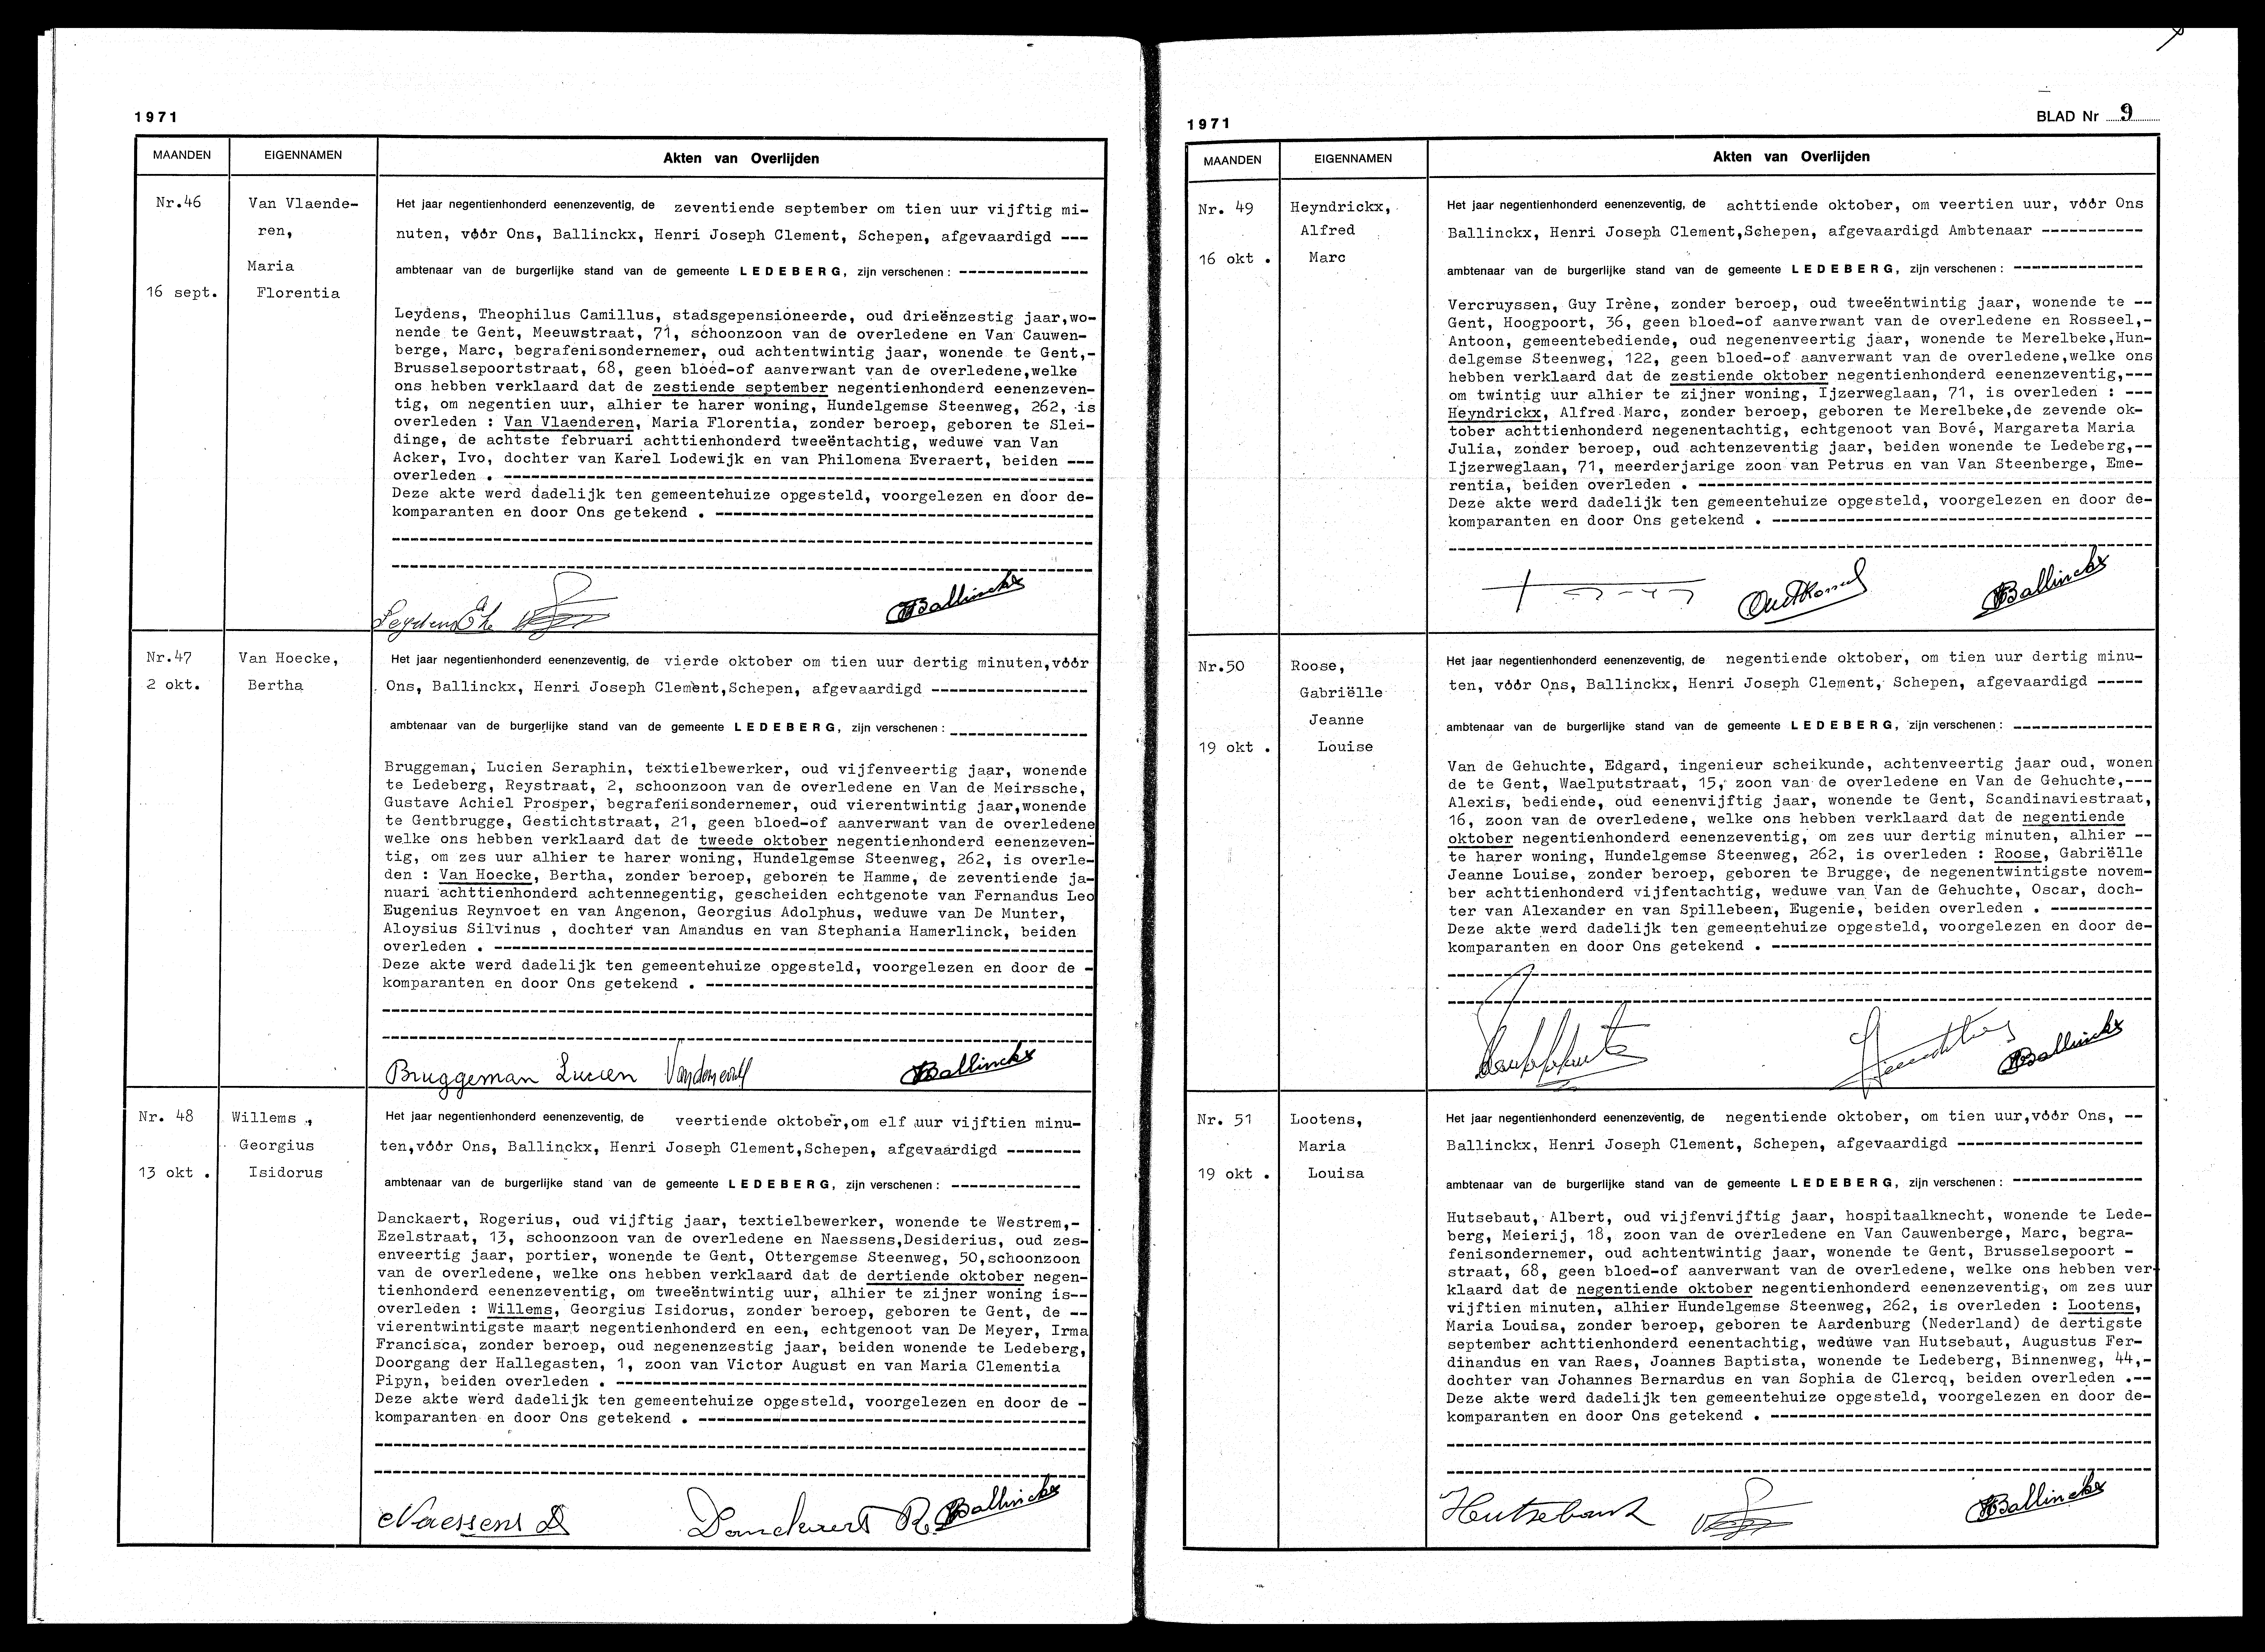 1971
MAANDEN EIGENNAMEN Akten van Overlijden
Nr.46
16 sept.
Van Vlaende-
ren,
Maria
Florentia
Het jaar negentienhonderd eenenzeventig, de zeventiende september om tien uur vijftig mi-
nuten, vóór Ons, Ballinckx, Henri Joseph Clement, Schepen, afgevaardigd ---
ambtenaar van de burgerlijke stand van de gemeente LEDEBERG, zijn verschenen : --------------
Leydens, Theophilus Camillus, stadsgepensioneerde, oud drieënzestig jaar,wo-
nende te Gent, Meeuwstraat, 71, schoonzoon van de overledene en Van Cauwen-
berge, Marc, begrafenisondernemer, oud achtentwintig jaar, wonende te Gent,-
Brusselsepoortstraat, 68, geen bloed-of aanverwant van de overledene,welke
ons hebben verklaard dat de zestiende september negentienhonderd eenenzeven-
tig, om negentien uur, alhier te harer woning, Hundelgemse Steenweg, 262, is
overleden : Van Vlaenderen, Maria Florentia, zonder beroep, geboren te Slei-
dinge, de achtste februari achttienhonderd tweeëntachtig, weduwe van Van
Acker, Ivo, dochter van Karel Lodewijk en van Philomena Everaert, beiden ---
overleden . ----------------
Deze akte werd dadelijk ten gemeentehuize opgesteld, voorgelezen en door de-
komparanten en door Ons getekend . ----------------
Ballinckx
Nr.47
2 okt.
Van Hoecke,
Bertha
Het jaar negentienhonderd eenenzeventig, de vierde oktober om tien uur dertig minuten,vóór
Ons, Ballinckx, Henri Joseph Clement,Schepen, afgevaardigd -----------------
ambtenaar van de burgerlijke stand van de gemeente LEDEBERG, zijn verschenen : ---------------
Bruggeman, Lucien Seraphin, textielbewerker, oud vijfenveertig jaar, wonende
te Ledeberg, Reystraat, 2, schoonzoon van de overledene en Van de Meirssche,
Gustave Achiel Prosper, begrafenisondernemer, oud vierentwintig jaar,wonende
te Gentbrugge, Gestichtstraat, 21, geen bloed-of aanverwant van de overledene
welke ons hebben verklaard dat de tweede oktober negentienhonderd eenenzeven-
tig, om zes uur alhier te harer woning, Hundelgemse Steenweg, 262, is overle-
den : Van Hoecke, Bertha, zonder beroep, geboren te Hamme, de zeventiende ja-
nuari achttienhonderd achtennegentig, gescheiden echtgenote van Fernandus Leo
Eugenius Reynvoet en van Angenon, Georgius Adolphus, weduwe van De Munter,
Aloysius Silvinus , dochter van Amandus en van Stephania Hamerlinck, beiden
overleden . ----------------
Deze akte werd dadelijk ten gemeentehuize opgesteld, voorgelezen en door de -
komparanten en door Ons getekend . ----------------
Bruggeman Lucien Ballinckx
Nr. 48
13 okt .
Willems ,
Georgius
Isidorus
Het jaar negentienhonderd eenenzeventig, de veertiende oktober,om elf uur vijftien minu-
ten,vóór Ons, Ballinckx, Henri Joseph Clement,Schepen, afgevaardigd --------
ambtenaar van de burgerlijke stand van de gemeente LEDEBERG, zijn verschenen : --------------
Danckaert, Rogerius, oud vijftig jaar, textielbewerker, wonende te Westrem,-
Ezelstraat, 13, schoonzoon van de overledene en Naessens,Desiderius, oud zes-
enveertig jaar, portier, wonende te Gent, Ottergemse Steenweg, 50,schoonzoon
van de overledene, welke ons hebben verklaard dat de dertiende oktober negen-
tienhonderd eenenzeventig, om tweeëntwintig uur, alhier te zijner woning is--
overleden : Willems, Georgius Isidorus, zonder beroep, geboren te Gent, de --
vierentwintigste maart negentienhonderd en een, echtgenoot van De Meyer, Irma
Francisca, zonder beroep, oud negenenzestig jaar, beiden wonende te Ledeberg,
Doorgang der Hallegasten, 1, zoon van Victor August en van Maria Clementia
Pipyn, beiden overleden . ----------------
Deze akte werd dadelijk ten gemeentehuize opgesteld, voorgelezen en door de -
komparanten en door Ons getekend . ----------------
Naessens D Danckaert R. Ballinckx
1971
BLAD Nr 9
MAANDEN EIGENNAMEN Akten van Overlijden
Nr. 49
16 okt .
Heyndrickx,
Alfred
Marc
Het jaar negentienhonderd eenenzeventig, de achttiende oktober, om veertien uur, vóór Ons
Ballinckx, Henri Joseph Clement,Schepen, afgevaardigd Ambtenaar -----------
ambtenaar van de burgerlijke stand van de gemeente LEDEBERG, zijn verschenen : --------------
Vercruyssen, Guy Irène, zonder beroep, oud tweeëntwintig jaar, wonende te --
Gent, Hoogpoort, 36, geen bloed-of aanverwant van de overledene en Rosseel,-
Antoon, gemeentebediende, oud negenenveertig jaar, wonende te Merelbeke,Hun-
delgemse Steenweg, 122, geen bloed-of aanverwant van de overledene,welke ons
hebben verklaard dat de zestiende oktober negentienhonderd eenenzeventig,---
om twintig uur alhier te zijner woning, Ijzerweglaan, 71, is overleden : ---
Heyndrickx, Alfred Marc, zonder beroep, geboren te Merelbeke,de zevende ok-
tober achttienhonderd negenentachtig, echtgenoot van Bové, Margareta Maria
Julia, zonder beroep, oud achtenzeventig jaar, beiden wonende te Ledeberg,--
Ijzerweglaan, 71, meerderjarige zoon van Petrus en van Van Steenberge, Eme-
rentia, beiden overleden . ----------------
Deze akte werd dadelijk ten gemeentehuize opgesteld, voorgelezen en door de-
komparanten en door Ons getekend . ----------------
Ballinckx
Nr.50
19 okt .
Roose,
Gabriëlle
Jeanne
Louise
Het jaar negentienhonderd eenenzeventig, de negentiende oktober, om tien uur dertig minu-
ten, vóór Ons, Ballinckx, Henri Joseph Clement, Schepen, afgevaardigd -----
ambtenaar van de burgerlijke stand van de gemeente LEDEBERG, zijn verschenen : --------------
Van de Gehuchte, Edgard, ingenieur scheikunde, achtenveertig jaar oud, wonen
de te Gent, Waelputstraat, 15, zoon van de overledene en Van de Gehuchte,---
Alexis, bediende, oud eenenvijftig jaar, wonende te Gent, Scandinaviestraat,
16, zoon van de overledene, welke ons hebben verklaard dat de negentiende
oktober negentienhonderd eenenzeventig, om zes uur dertig minuten, alhier --
te harer woning, Hundelgemse Steenweg, 262, is overleden : Roose, Gabriëlle
Jeanne Louise, zonder beroep, geboren te Brugge, de negenentwintigste novem-
ber achttienhonderd vijfentachtig, weduwe van Van de Gehuchte, Oscar, doch-
ter van Alexander en van Spillebeen, Eugenie, beiden overleden . -----------
Deze akte werd dadelijk ten gemeentehuize opgesteld, voorgelezen en door de-
komparanten en door Ons getekend . ----------------
Ballinckx
Nr. 51
19 okt .
Lootens,
Maria
Louisa
Het jaar negentienhonderd eenenzeventig, de negentiende oktober, om tien uur,vóór Ons, --
Ballinckx, Henri Joseph Clement, Schepen, afgevaardigd --------------------
ambtenaar van de burgerlijke stand van de gemeente LEDEBERG, zijn verschenen : --------------
Hutsebaut, Albert, oud vijfenvijftig jaar, hospitaalknecht, wonende te Lede-
berg, Meierij, 18, zoon van de overledene en Van Cauwenberge, Marc, begra-
fenisondernemer, oud achtentwintig jaar, wonende te Gent, Brusselsepoort -
straat, 68, geen bloed-of aanverwant van de overledene, welke ons hebben ver-
klaard dat de negentiende oktober negentienhonderd eenenzeventig, om zes uur
vijftien minuten, alhier Hundelgemse Steenweg, 262, is overleden : Lootens,
Maria Louisa, zonder beroep, geboren te Aardenburg (Nederland) de dertigste
september achttienhonderd eenentachtig, weduwe van Hutsebaut, Augustus Fer-
dinandus en van Raes, Joannes Baptista, wonende te Ledeberg, Binnenweg, 44,-
dochter van Johannes Bernardus en van Sophia de Clercq, beiden overleden .--
Deze akte werd dadelijk ten gemeentehuize opgesteld, voorgelezen en door de-
komparanten en door Ons getekend . ----------------
Hutsebaut Ballinckx